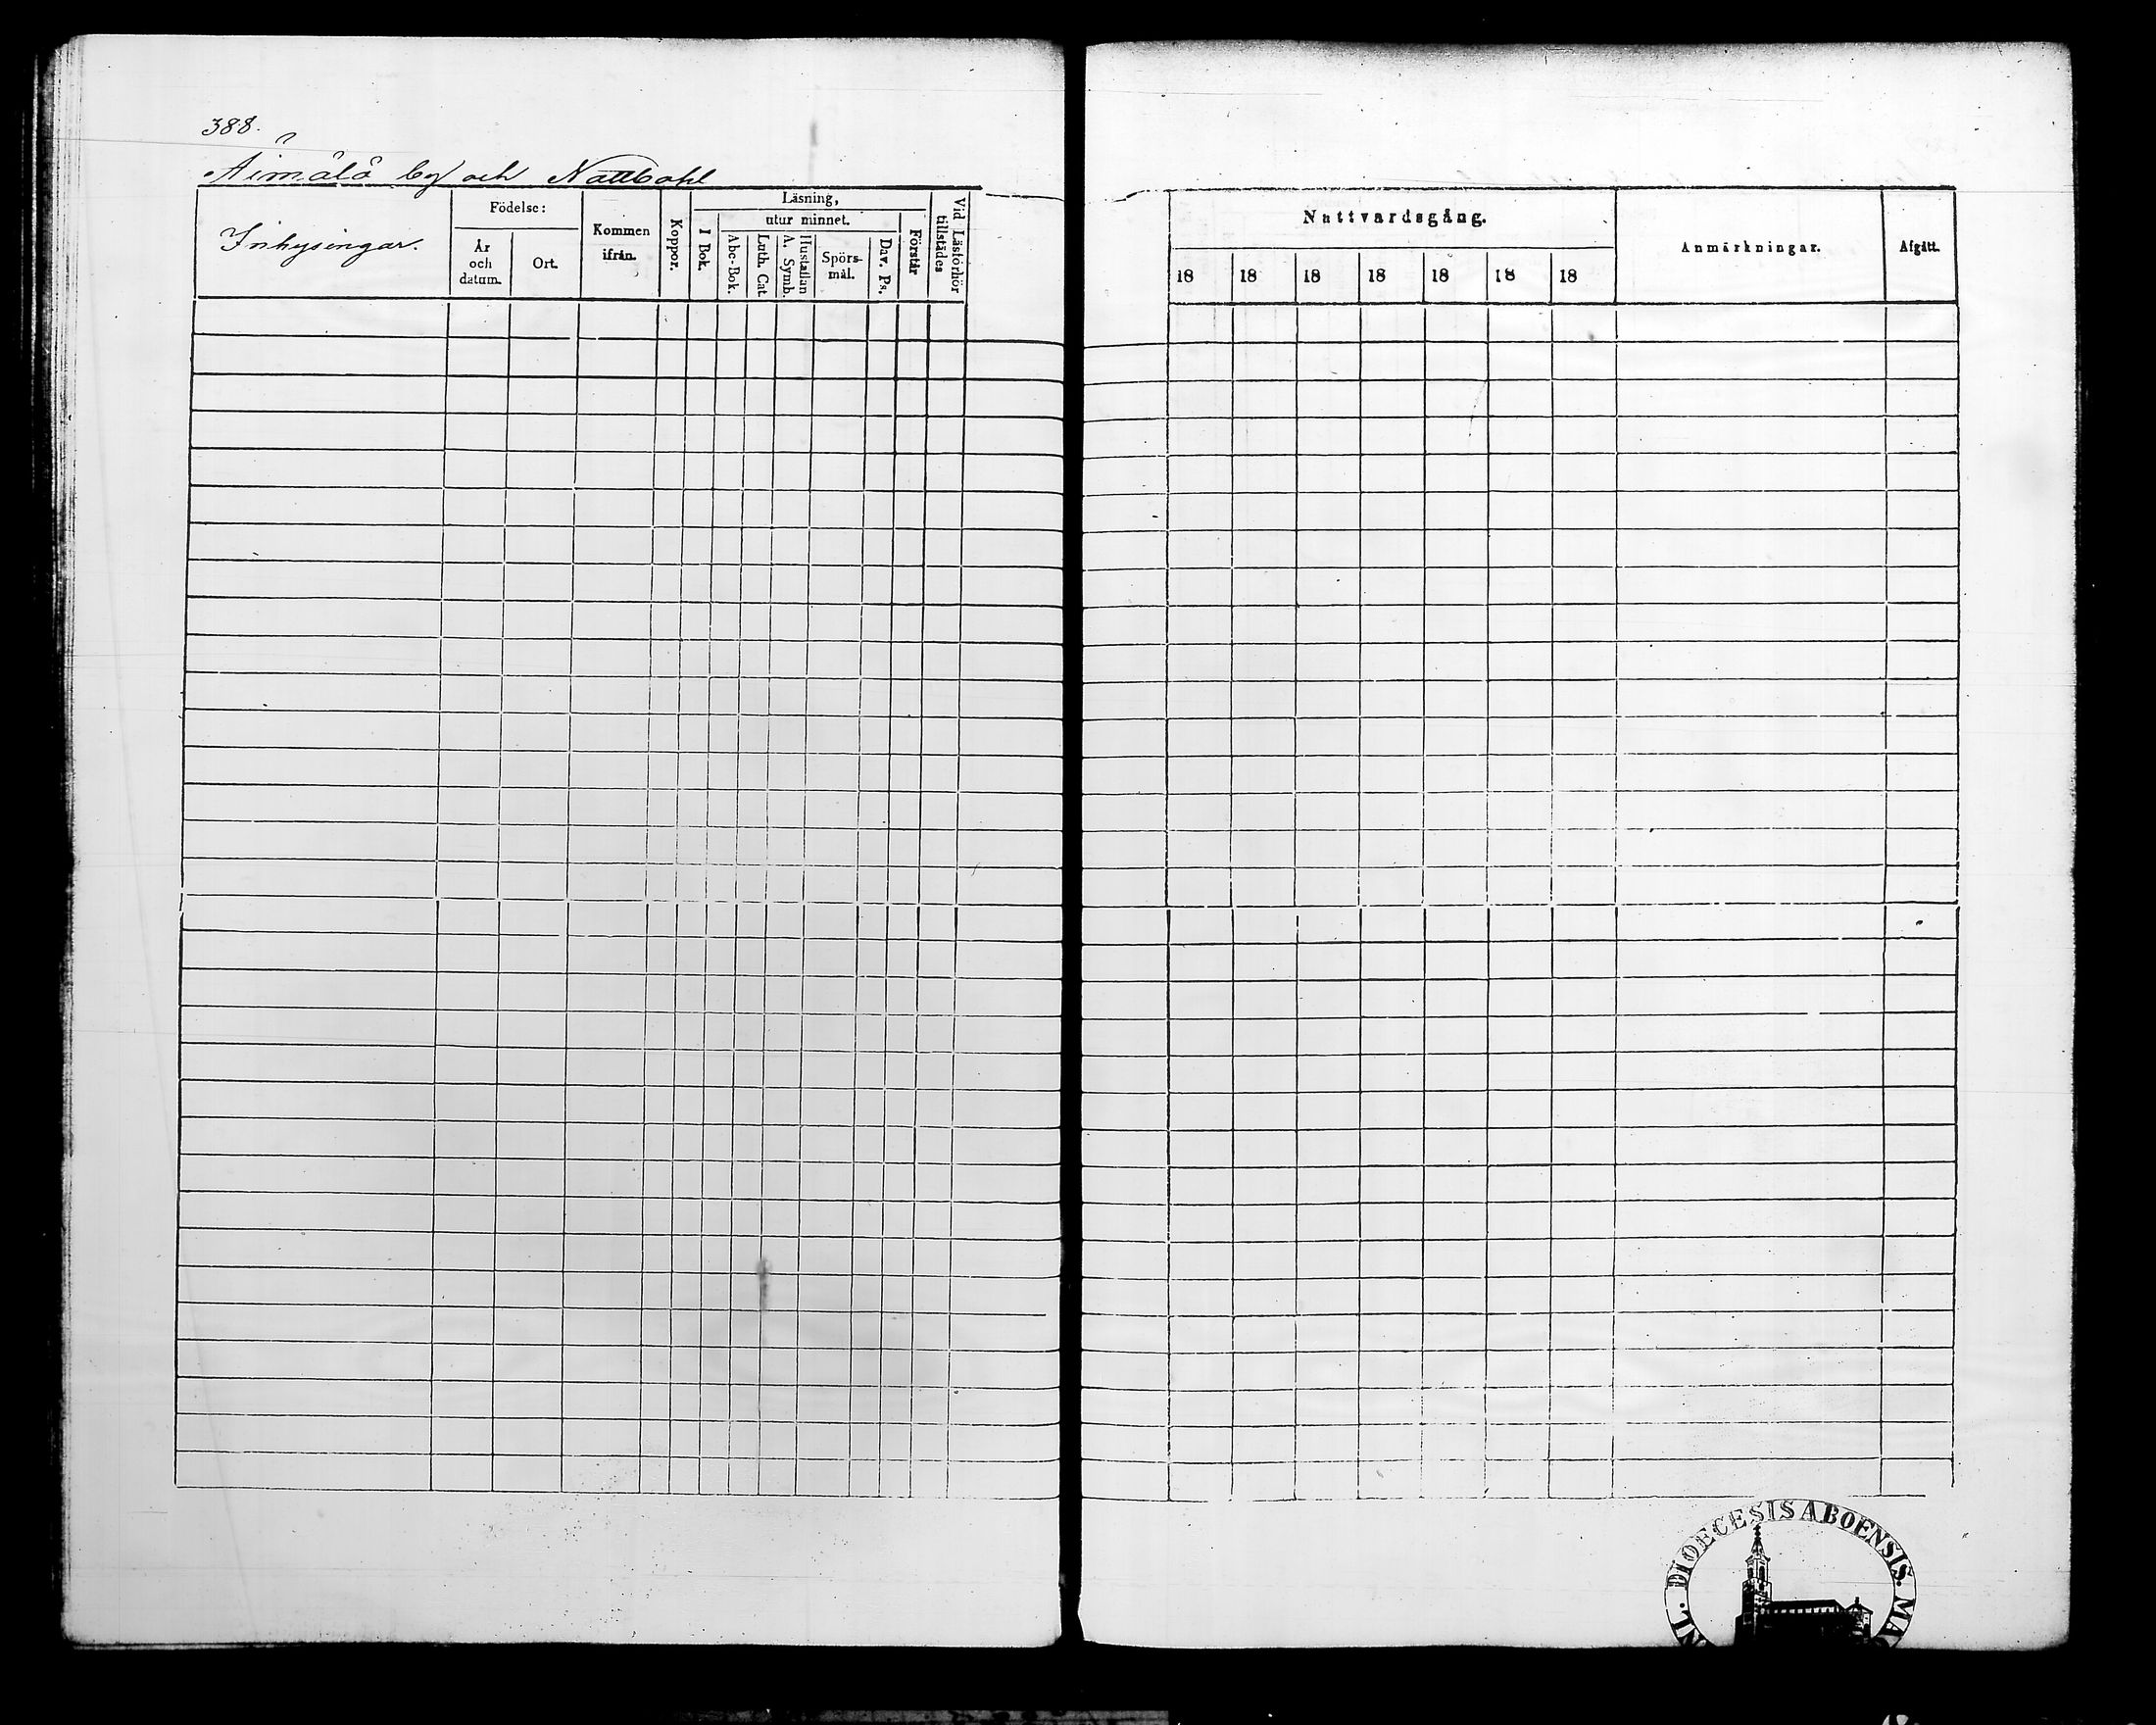 388.
Äimälä by och Nattbohl
Inhysingar.
Födelse:
År och datum.
Ort.
Kommen ifrån.
Koppor.
Läsning,
I Bok.
utur minnet.
Abc-Bok.
Luth. Cat.
Hustaflan
A. Symb.
Spörs-
mål.
Dav. Ps.
Förstår
Vid Läsförhör
tillstädes
Nattvardsgång.
18 18 18 18 18 18 18
Anmärkningar.
Afgått.
DIOECESIS ABOENSIS.